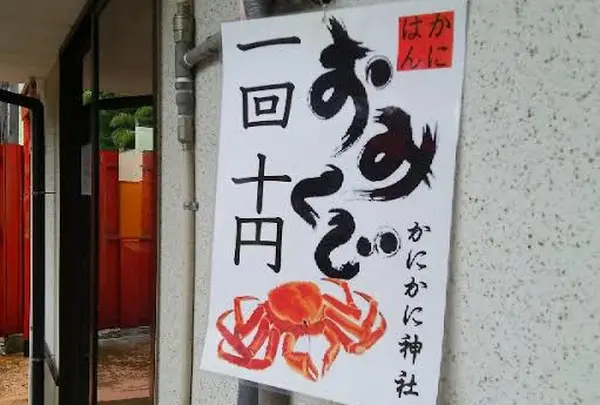 かに
はん
おみくじ
一回十円
かにかに神社